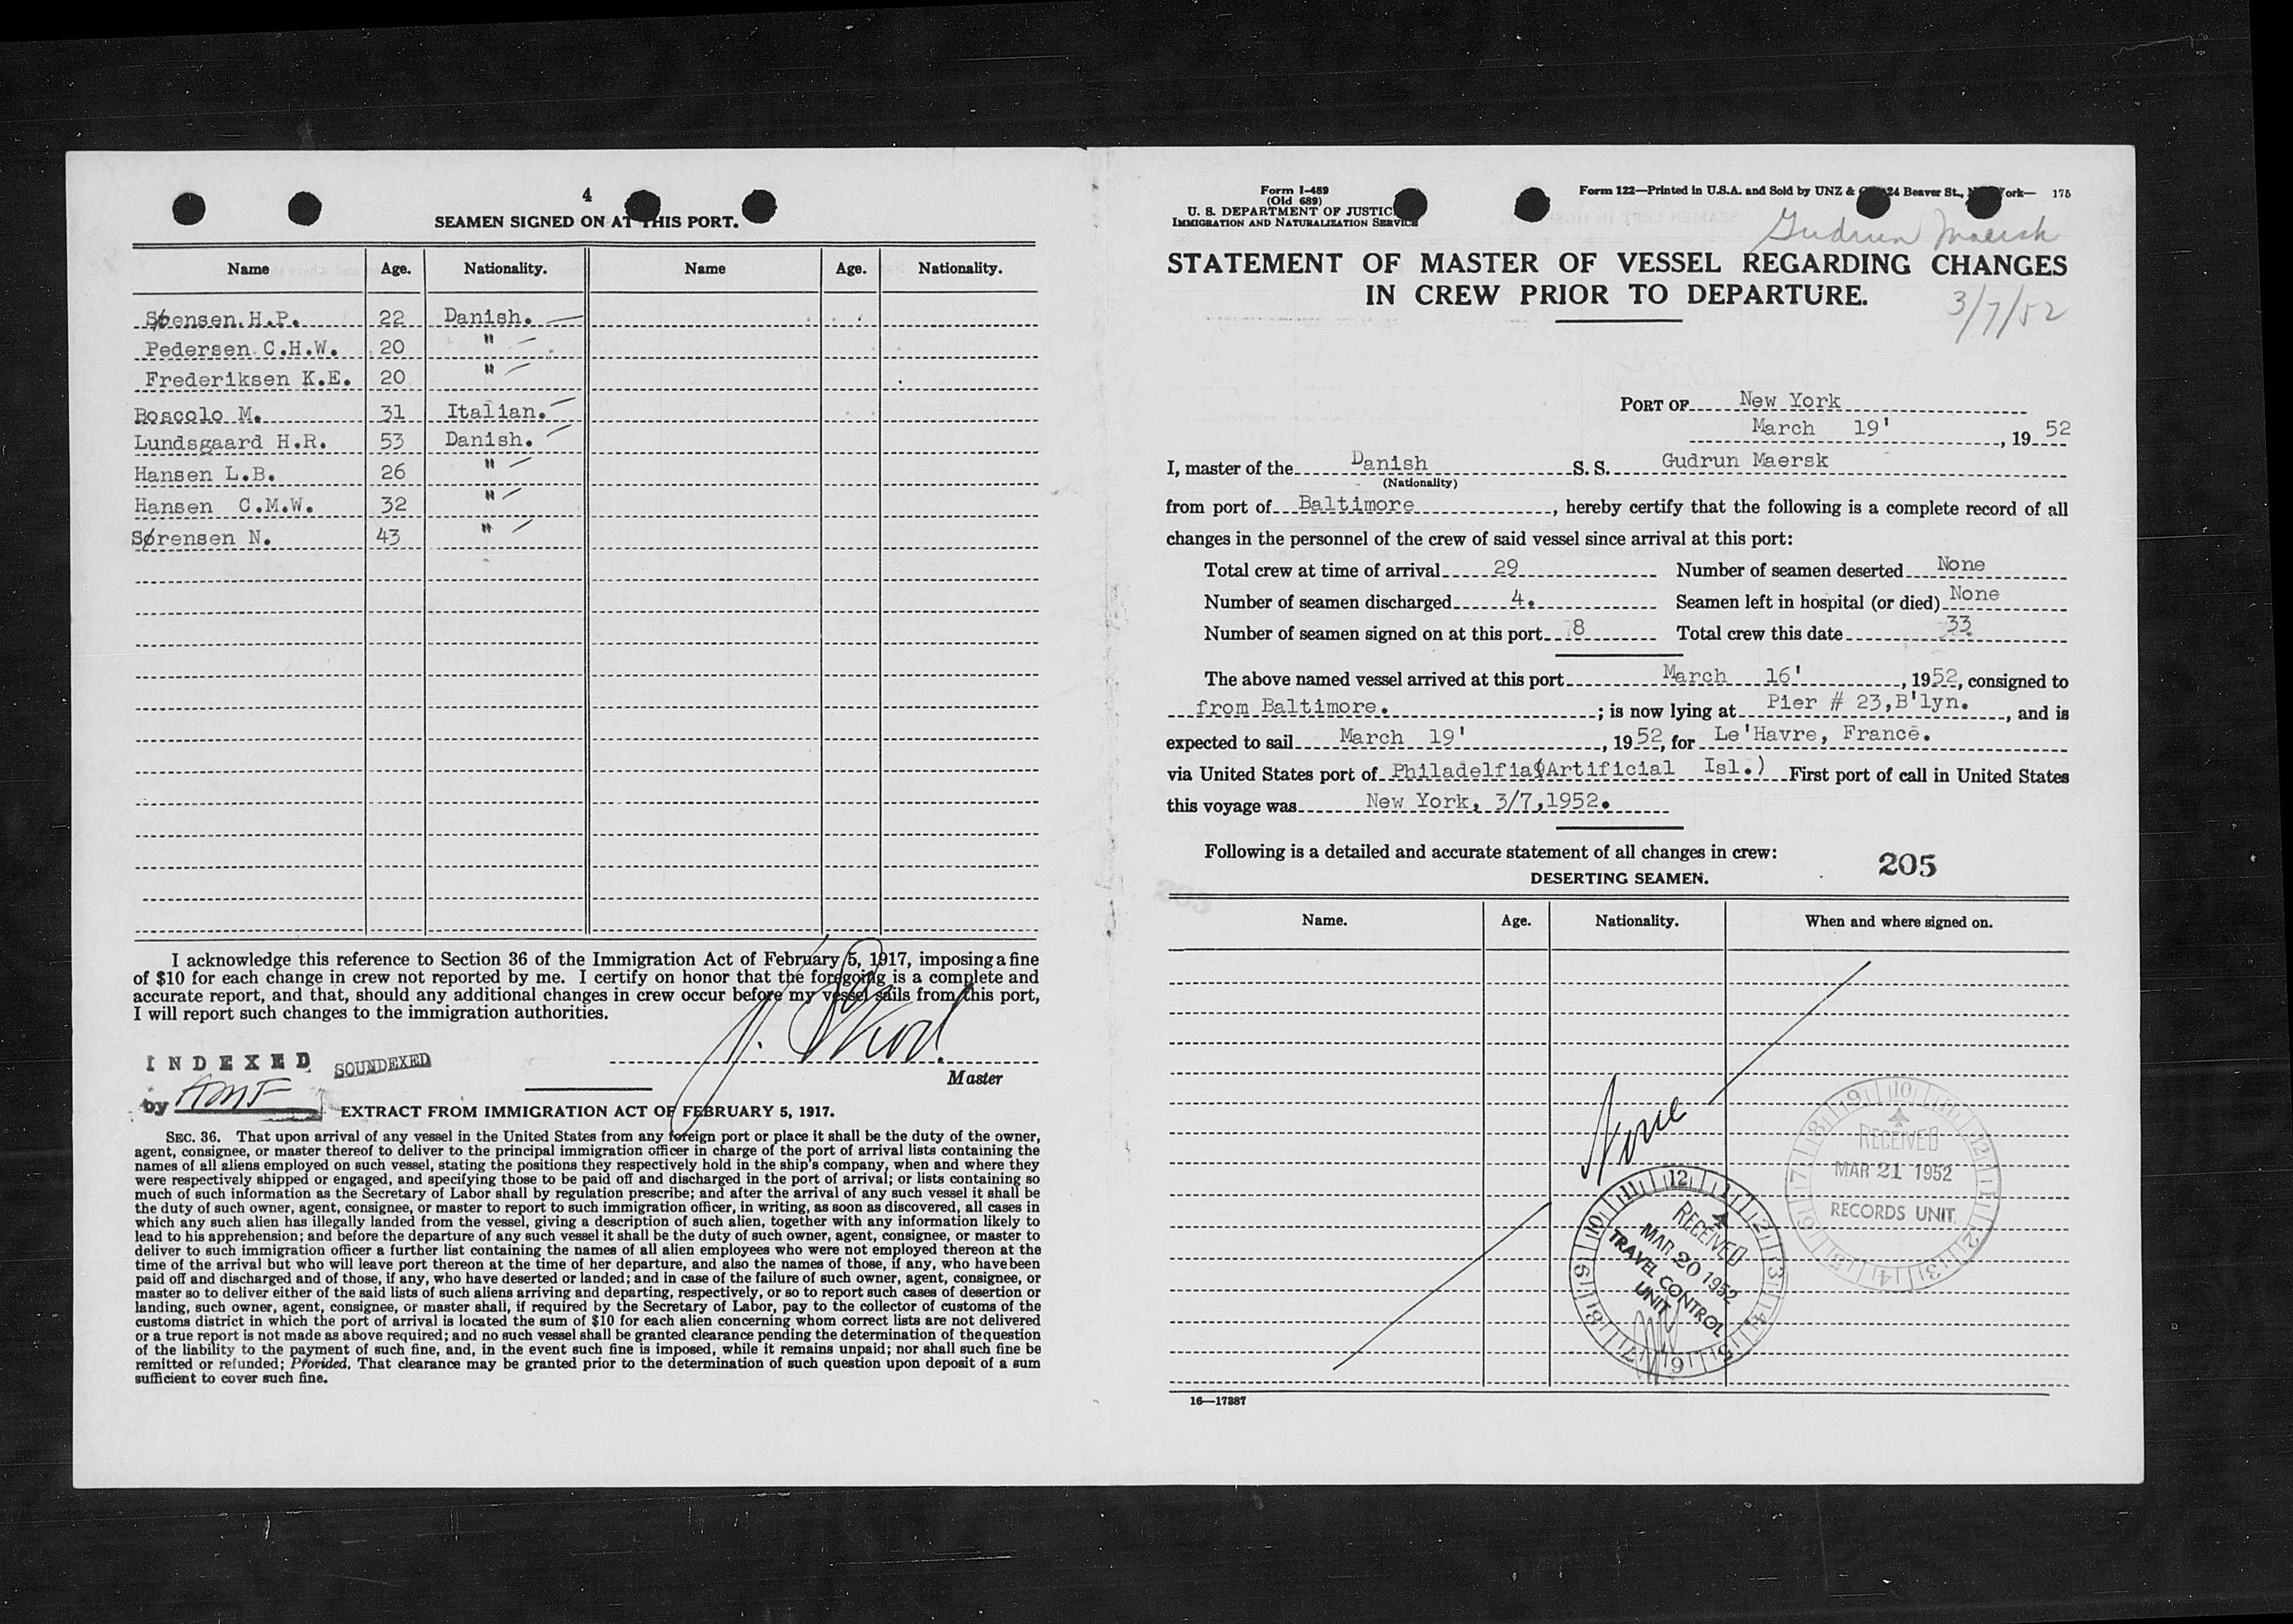 4
SEAMEN SIGNED ON AT THIS PORT.
Name Age. Nationality. Name Age. Nationality.
Søensen H.P. 22 Danish.
Pedersen C.H.W. 20 "
Frederiksen K.E. 20 "
Boscolo M. 31 Italian.
Lundsgaard H.R. 53 Danish.
Hansen L.B. 26 "
Hansen C.M.W. 32 "
Sørensen N. 43 "
I acknowledge this reference to Section 36 of the Immigration Act of February 5, 1917, imposing a fine
of $10 for each change in crew not reported by me. I certify on honor that the foregoing is a complete and
accurate report, and that, should any additional changes in crew occur before my vessel sails from this port,
I will report such changes to the immigration authorities.
INDEXED SOUNDEXED
Master
by
EXTRACT FROM IMMIGRATION ACT OF FEBRUARY 5, 1917.
SEC. 36. That upon arrival of any vessel in the United States from any foreign port or place it shall be the duty of the owner,
agent, consignee, or master thereof to deliver to the principal immigration officer in charge of the port of arrival lists containing the
names of all aliens employed on such vessel, stating the positions they respectively hold in the ship's company, when and where they
were respectively shipped or engaged, and specifying those to be paid off and discharged in the port of arrival; or lists containing so
much of such information as the Secretary of Labor shall by regulation prescribe; and after the arrival of any such vessel it shall be
the duty of such owner, agent, consignee, or master to report to such immigration officer, in writing, as soon as discovered, all cases in
which any such alien has illegally landed from the vessel, giving a description of such alien, together with any information likely to
lead to his apprehension; and before the departure of any such vessel it shall be the duty of such owner, agent, consignee, or master to
deliver to such immigration officer a further list containing the names of all alien employees who were not employed thereon at the
time of the arrival but who will leave port thereon at the time of her departure, and also the names of those, if any, who have been
paid off and discharged and of those, if any, who have deserted or landed; and in case of the failure of such owner, agent, consignee, or
master so to deliver either of the said lists of such aliens arriving and departing, respectively, or so to report such cases of desertion or
landing, such owner, agent, consignee, or master shall, if required by the Secretary of Labor, pay to the collector of customs of the
customs district in which the port of arrival is located the sum of $10 for each alien concerning whom correct lists are not delivered
or a true report is not made as above required; and no such vessel shall be granted clearance pending the determination of the question
of the liability to the payment of such fine, and, in the event such fine is imposed, while it remains unpaid; nor shall such fine be
remitted or refunded; Provided, That clearance may be granted prior to the determination of such question upon deposit of a sum
sufficient to cover such fine.
Form I-489
(Old 689)
U. S. DEPARTMENT OF JUSTICE
IMMIGRATION AND NATURALIZATION SERVICE
Form 122—Printed in U.S.A. and Sold by UNZ & 24 Beaver St., ork— 175
Gudrun Maersk
STATEMENT OF MASTER OF VESSEL REGARDING CHANGES
IN CREW PRIOR TO DEPARTURE.
3/7/52
PORT OF New York
March 19', 1952
I, master of the Danish S. S. Gudrun Maersk
(Nationality)
from port of Baltimore, hereby certify that the following is a complete record of all
changes in the personnel of the crew of said vessel since arrival at this port:
Total crew at time of arrival 29 Number of seamen deserted None
Number of seamen discharged 4. Seamen left in hospital (or died) None
Number of seamen signed on at this port 8 Total crew this date 33
The above named vessel arrived at this port March 16', 1952, consigned to
from Baltimore.; is now lying at Pier # 23,B'lyn., and is
expected to sail March 19', 1952, for Le'Havre, France.
via United States port of Philadelfia(Artificial Isl.) First port of call in United States
this voyage was New York, 3/7,1952.
Following is a detailed and accurate statement of all changes in crew:
205
DESERTING SEAMEN.
Name. Age. Nationality. When and where signed on.
None
RECEIVED
MAR 21 1952
RECORDS UNIT
RECEIVED
MAR 20 1952
TRAVEL CONTROL
UNIT
16—17387